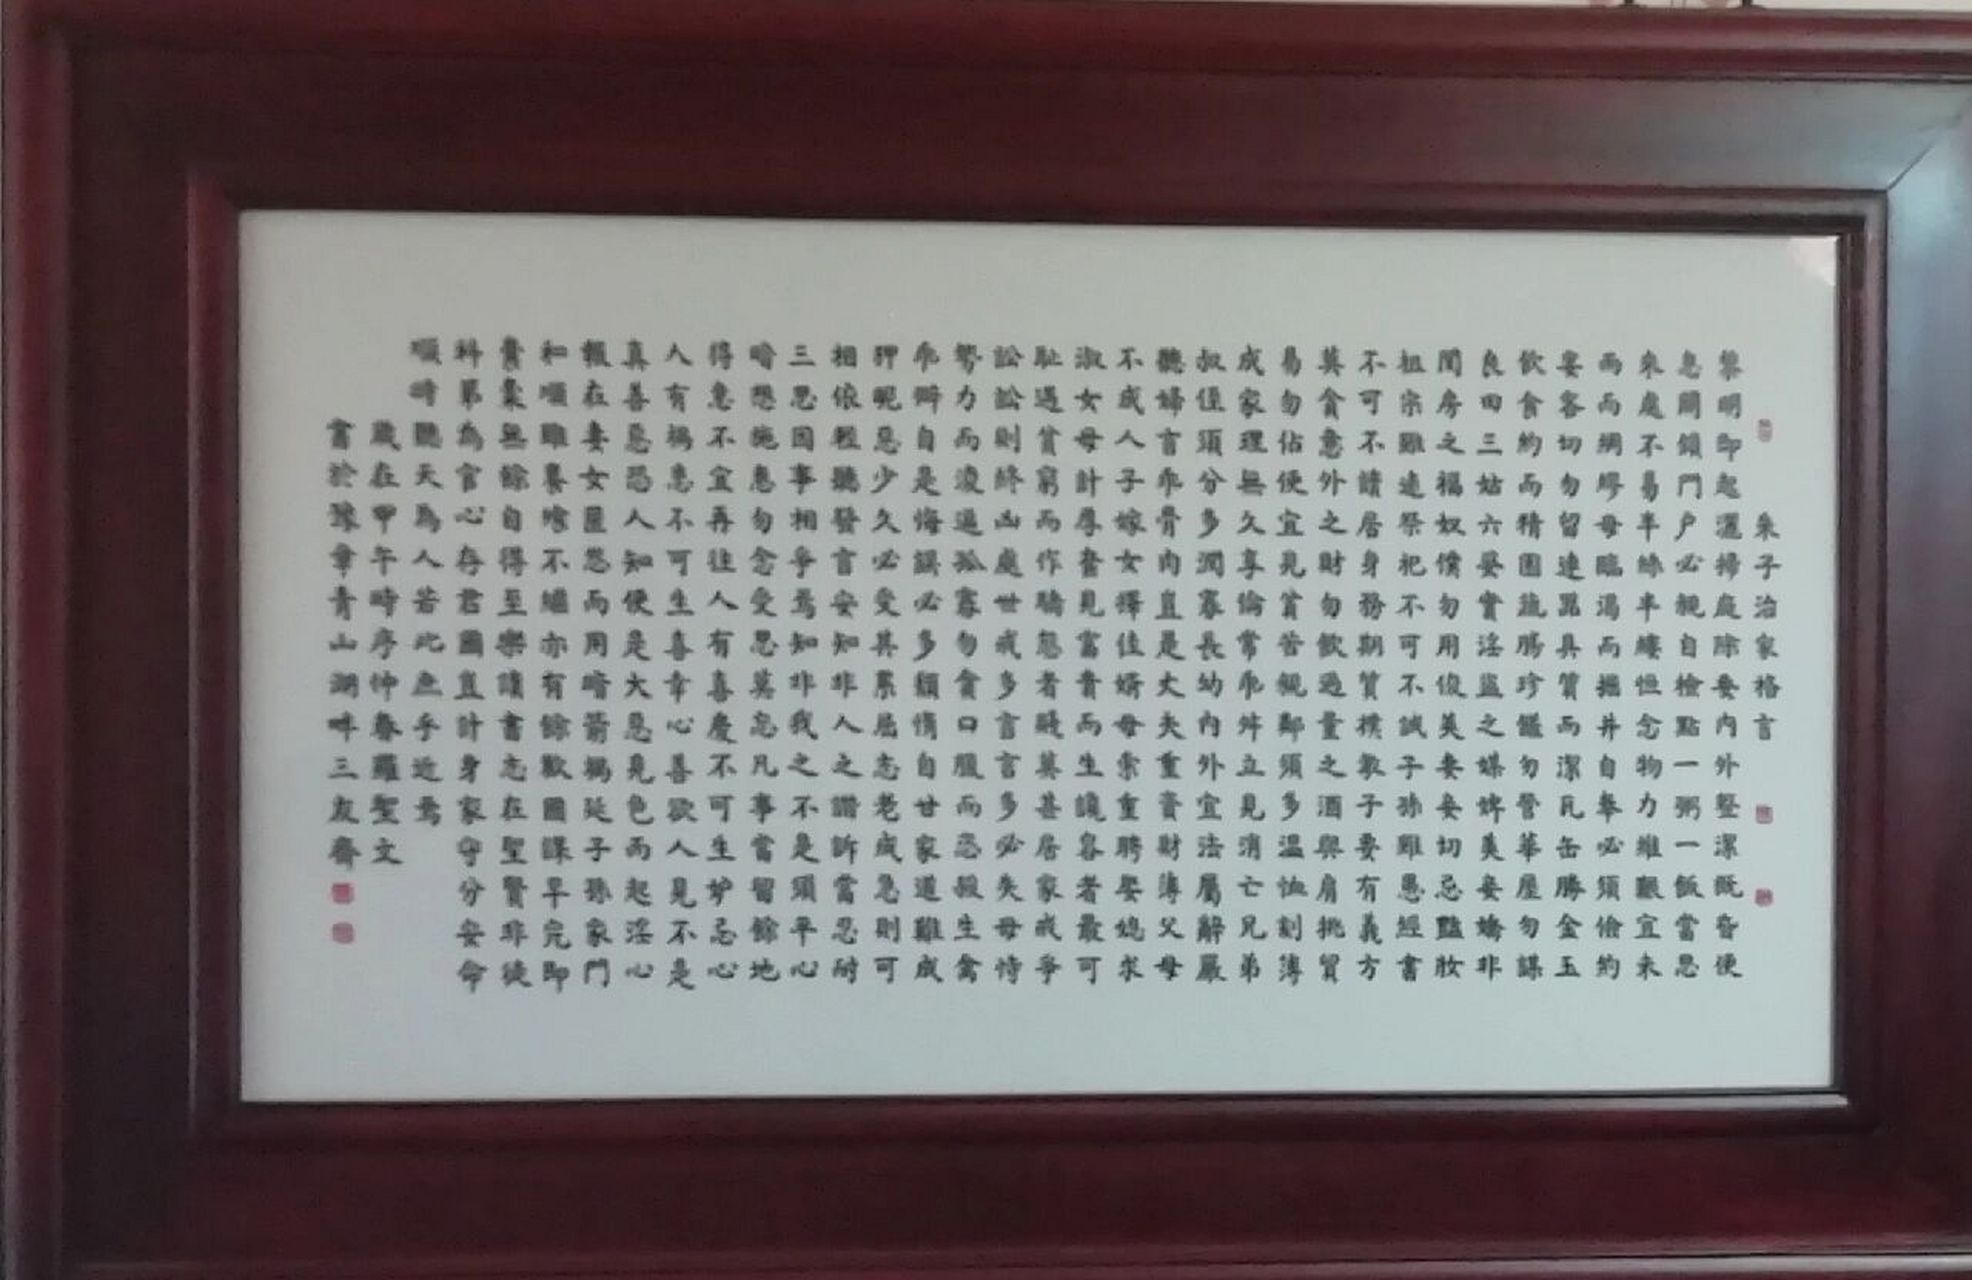 朱子治家格言
黎明即起灑掃庭除要内外整潔既昏便
息關鎖門户必親自檢點一粥一飯當思
來處不易半絲半縷恒念物力維艱宜未
雨而綢繆毋臨渴而掘井自奉必須儉約
宴客切勿留連器具質而潔瓦缶勝金玉
飲食約而精園蔬勝珍饈勿營華屋勿謀
良田三姑六婆實淫盜之媒婢美妾嬌非
閨房之福奴僕勿用俊美妻妾切忌豔妝
祖宗雖遠祭祀不可不誠子孫雖愚經書
不可不讀居身務期質樸教子要有義方
莫貪意外之財勿飲過量之酒與肩挑貿
易勿佔便宜見貧苦親鄰須多溫恤刻薄
成家理無久享倫常乖舛立見消亡兄弟
叔侄須分多潤寡長幼內外宜法屬辭嚴
聽婦言乖骨肉豈是大夫重資財薄父母
不成人子嫁女擇佳婿毋索重聘娶媳求
淑女毋計厚奩見富貴而生讒容者最可
恥遇貧窮而作驕態者賤莫甚居家戒爭
訟訟則終凶處世戒多言言多必失毋恃
勢力而淩逼孤寡勿貪口腹而恣殺生禽
乖僻自是悔誤必多頹惰自甘家道難成
狎昵惡少久必受其累屈志老成急則可
相依輕聽發言安知非人之譖訴當忍耐
三思因事相爭焉知非我之不是須平心
暗想施惠勿念受恩莫忘凡事當留餘地
得意不宜再往人有喜慶不可生妒忌心
人有禍患不可生喜幸心善欲人見不是
真善惡恐人知便是大惡見色而起淫心
報在妻女匿怨而用暗箭禍延子孫家門
和順雖饔飧不繼亦有餘歡國課早完即
囊橐無餘自得至樂讀書志在聖賢非徒
科第為官心存君國豈計身家守分安命
順時聽天為人若此庶乎近焉
歲在甲午時序仲春羅聖文
書於豫章青山湖畔三友齋